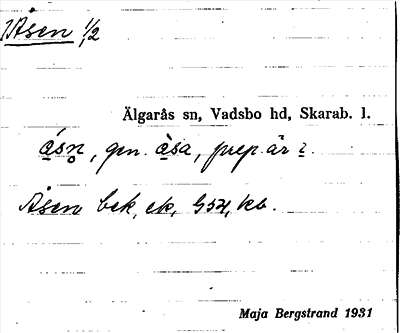 Åsen 1/2
Älgarås sn, Vadsbo hd, Skarab. l.
gen. prep. är
Åsen bek, ek, G54, kb.
Maja Bergstrand 1931